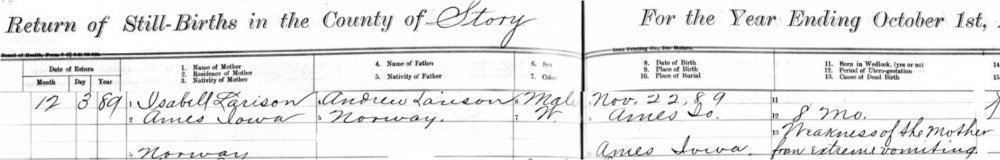 Return of Still-Births in the County of Story For the Year Ending October 1st,
Iowa Printing Co., Des Moines.
Date of Return 1. Name of Mother 4. Name of Father 6. Sex 8. Date of Birth 11. Born in Wedlock, (yes or no)
2. Residence of Mother 9. Place of Birth 12. Period of Utero-gestation
Month Day Year 3. Nativity of Mother 5. Nativity of Father 7. Color 10. Place of Burial 13. Cause of Dead Birth 14.
12 3 89 1 Isabell Larison 4 Andrew Larison 6 Male Nov. 22, 89 11
2 Ames Iowa 5 Norway. 7 W. 9 Ames Io. 12 8 Mo.
13 Weakness of the Mother
Norway Ames Iowa. from extreme vomiting.